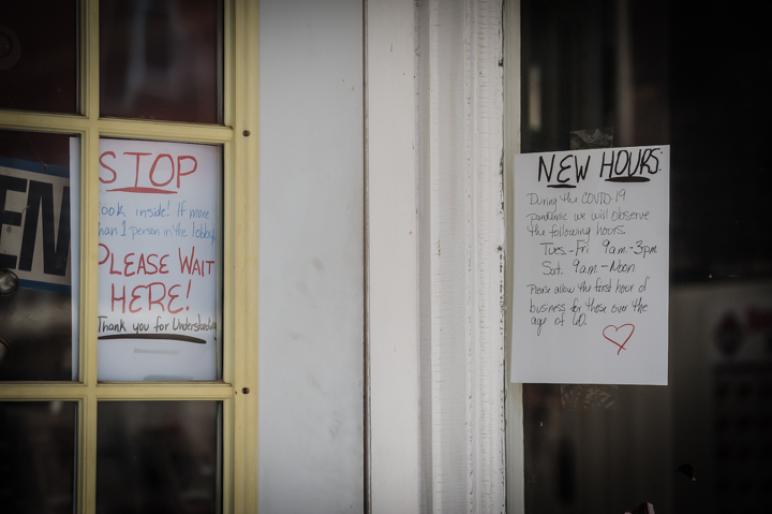 EN
STOP
ook inside! If more
han 1 person in the lobby
PLEASE WAIT
HERE!
Thank you for Understanding
NEW HOURS:
During the COVID-19
pandemic we will observe
the following hours.
Tues.-Fri. 9am.-3pm
Sat. 9am.-Noon
Please allow the first hour of
business for those over the
age of 60.